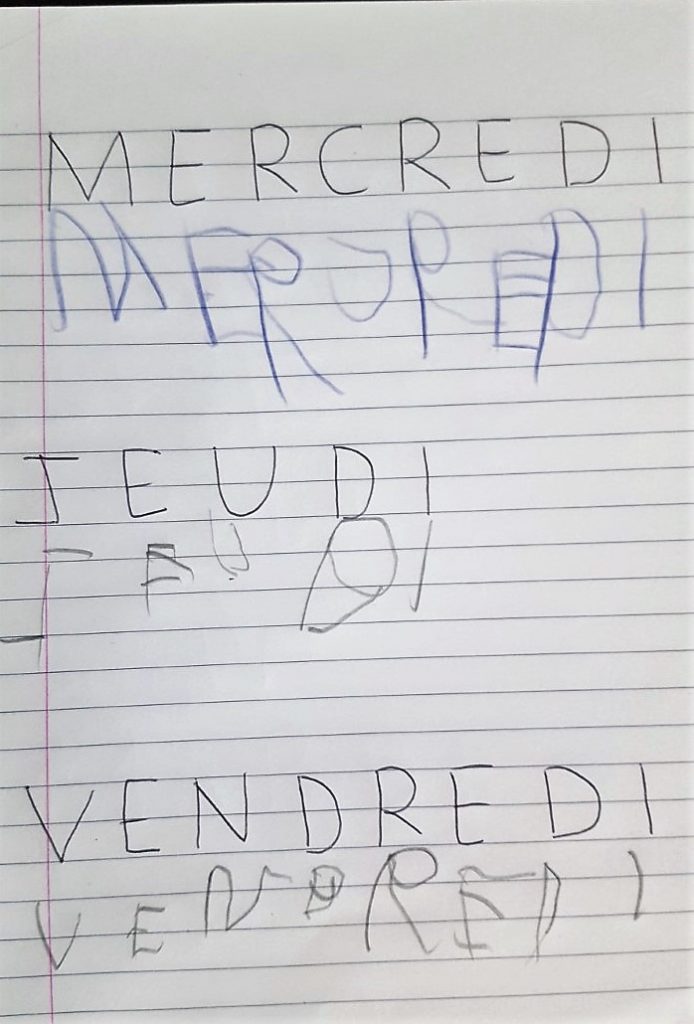 MERCREDI
MERCREDI
JEUDI
JEUDI
VENDREDI
VENDREDI